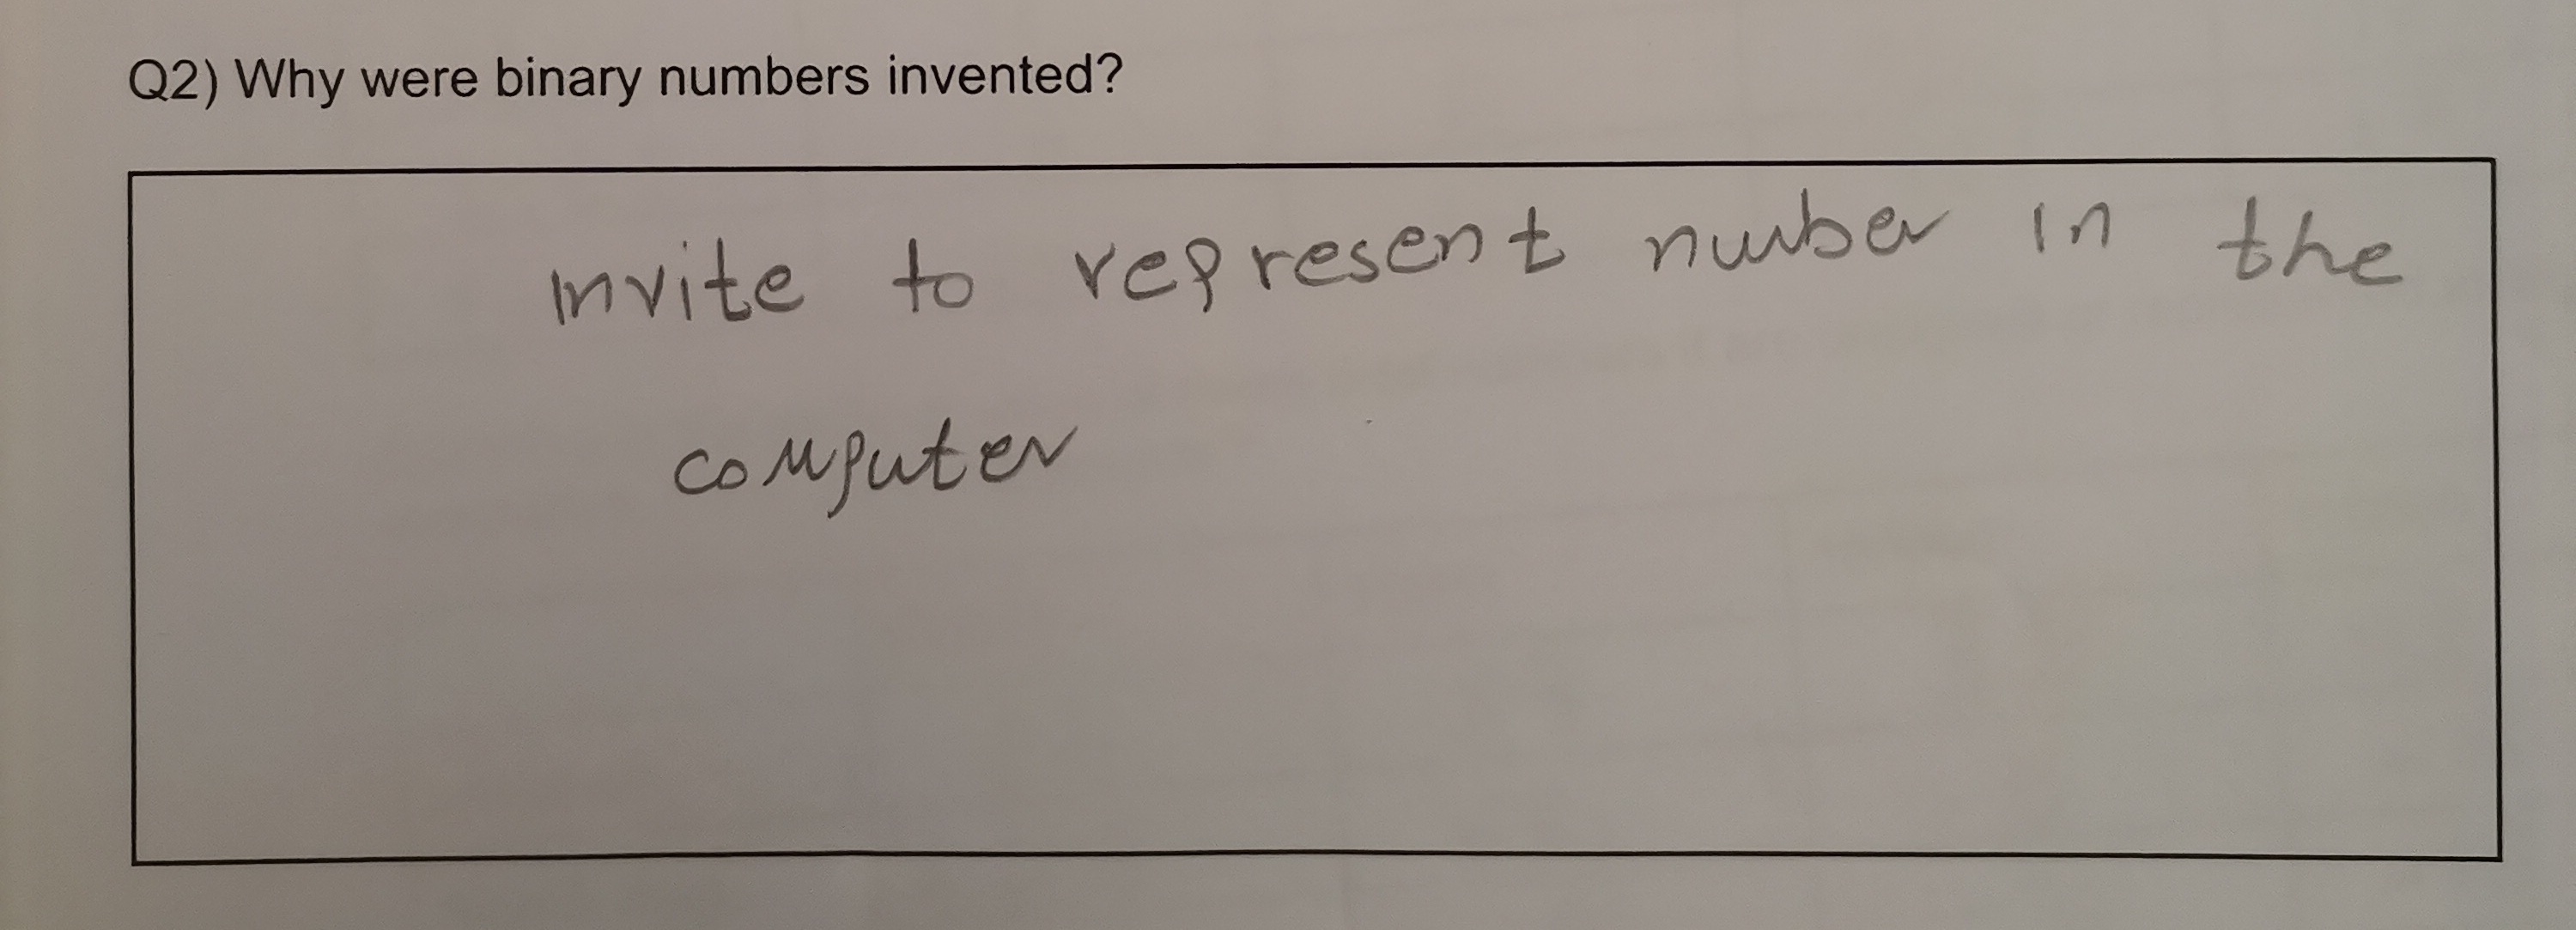 Q2) Why were binary numbers invented?
invite to represent number in the
computer